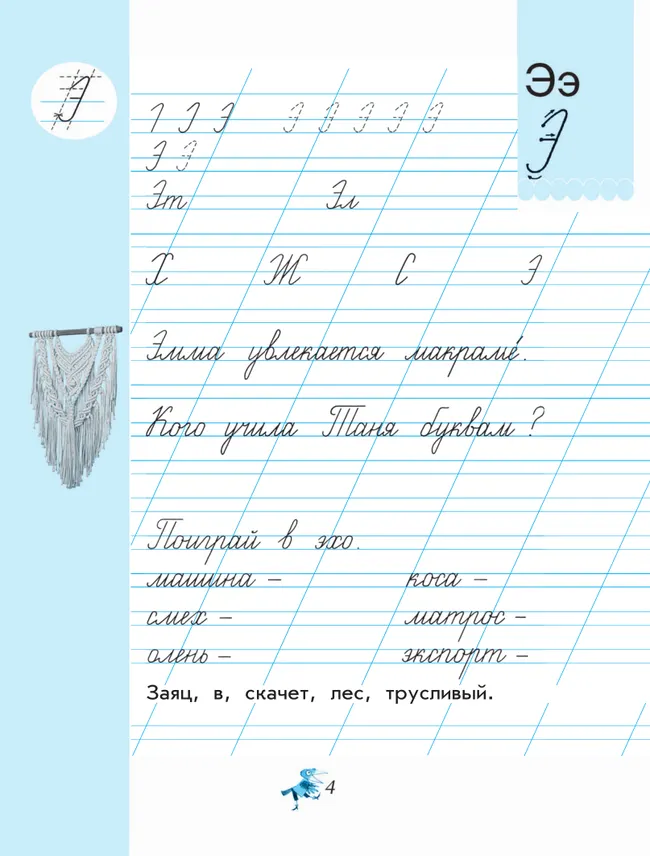 Ээ
Э
Э
Э Э Э Э Э Э
Э Э
Эт Эл
Х Ж С Э
Эмма увлекается макраме́.
Кого учила Таня буквам ?
Поиграй в эхо.
машина – коса –
смех – матрос –
олень – экспорт –
Заяц, в, скачет, лес, трусливый.
4